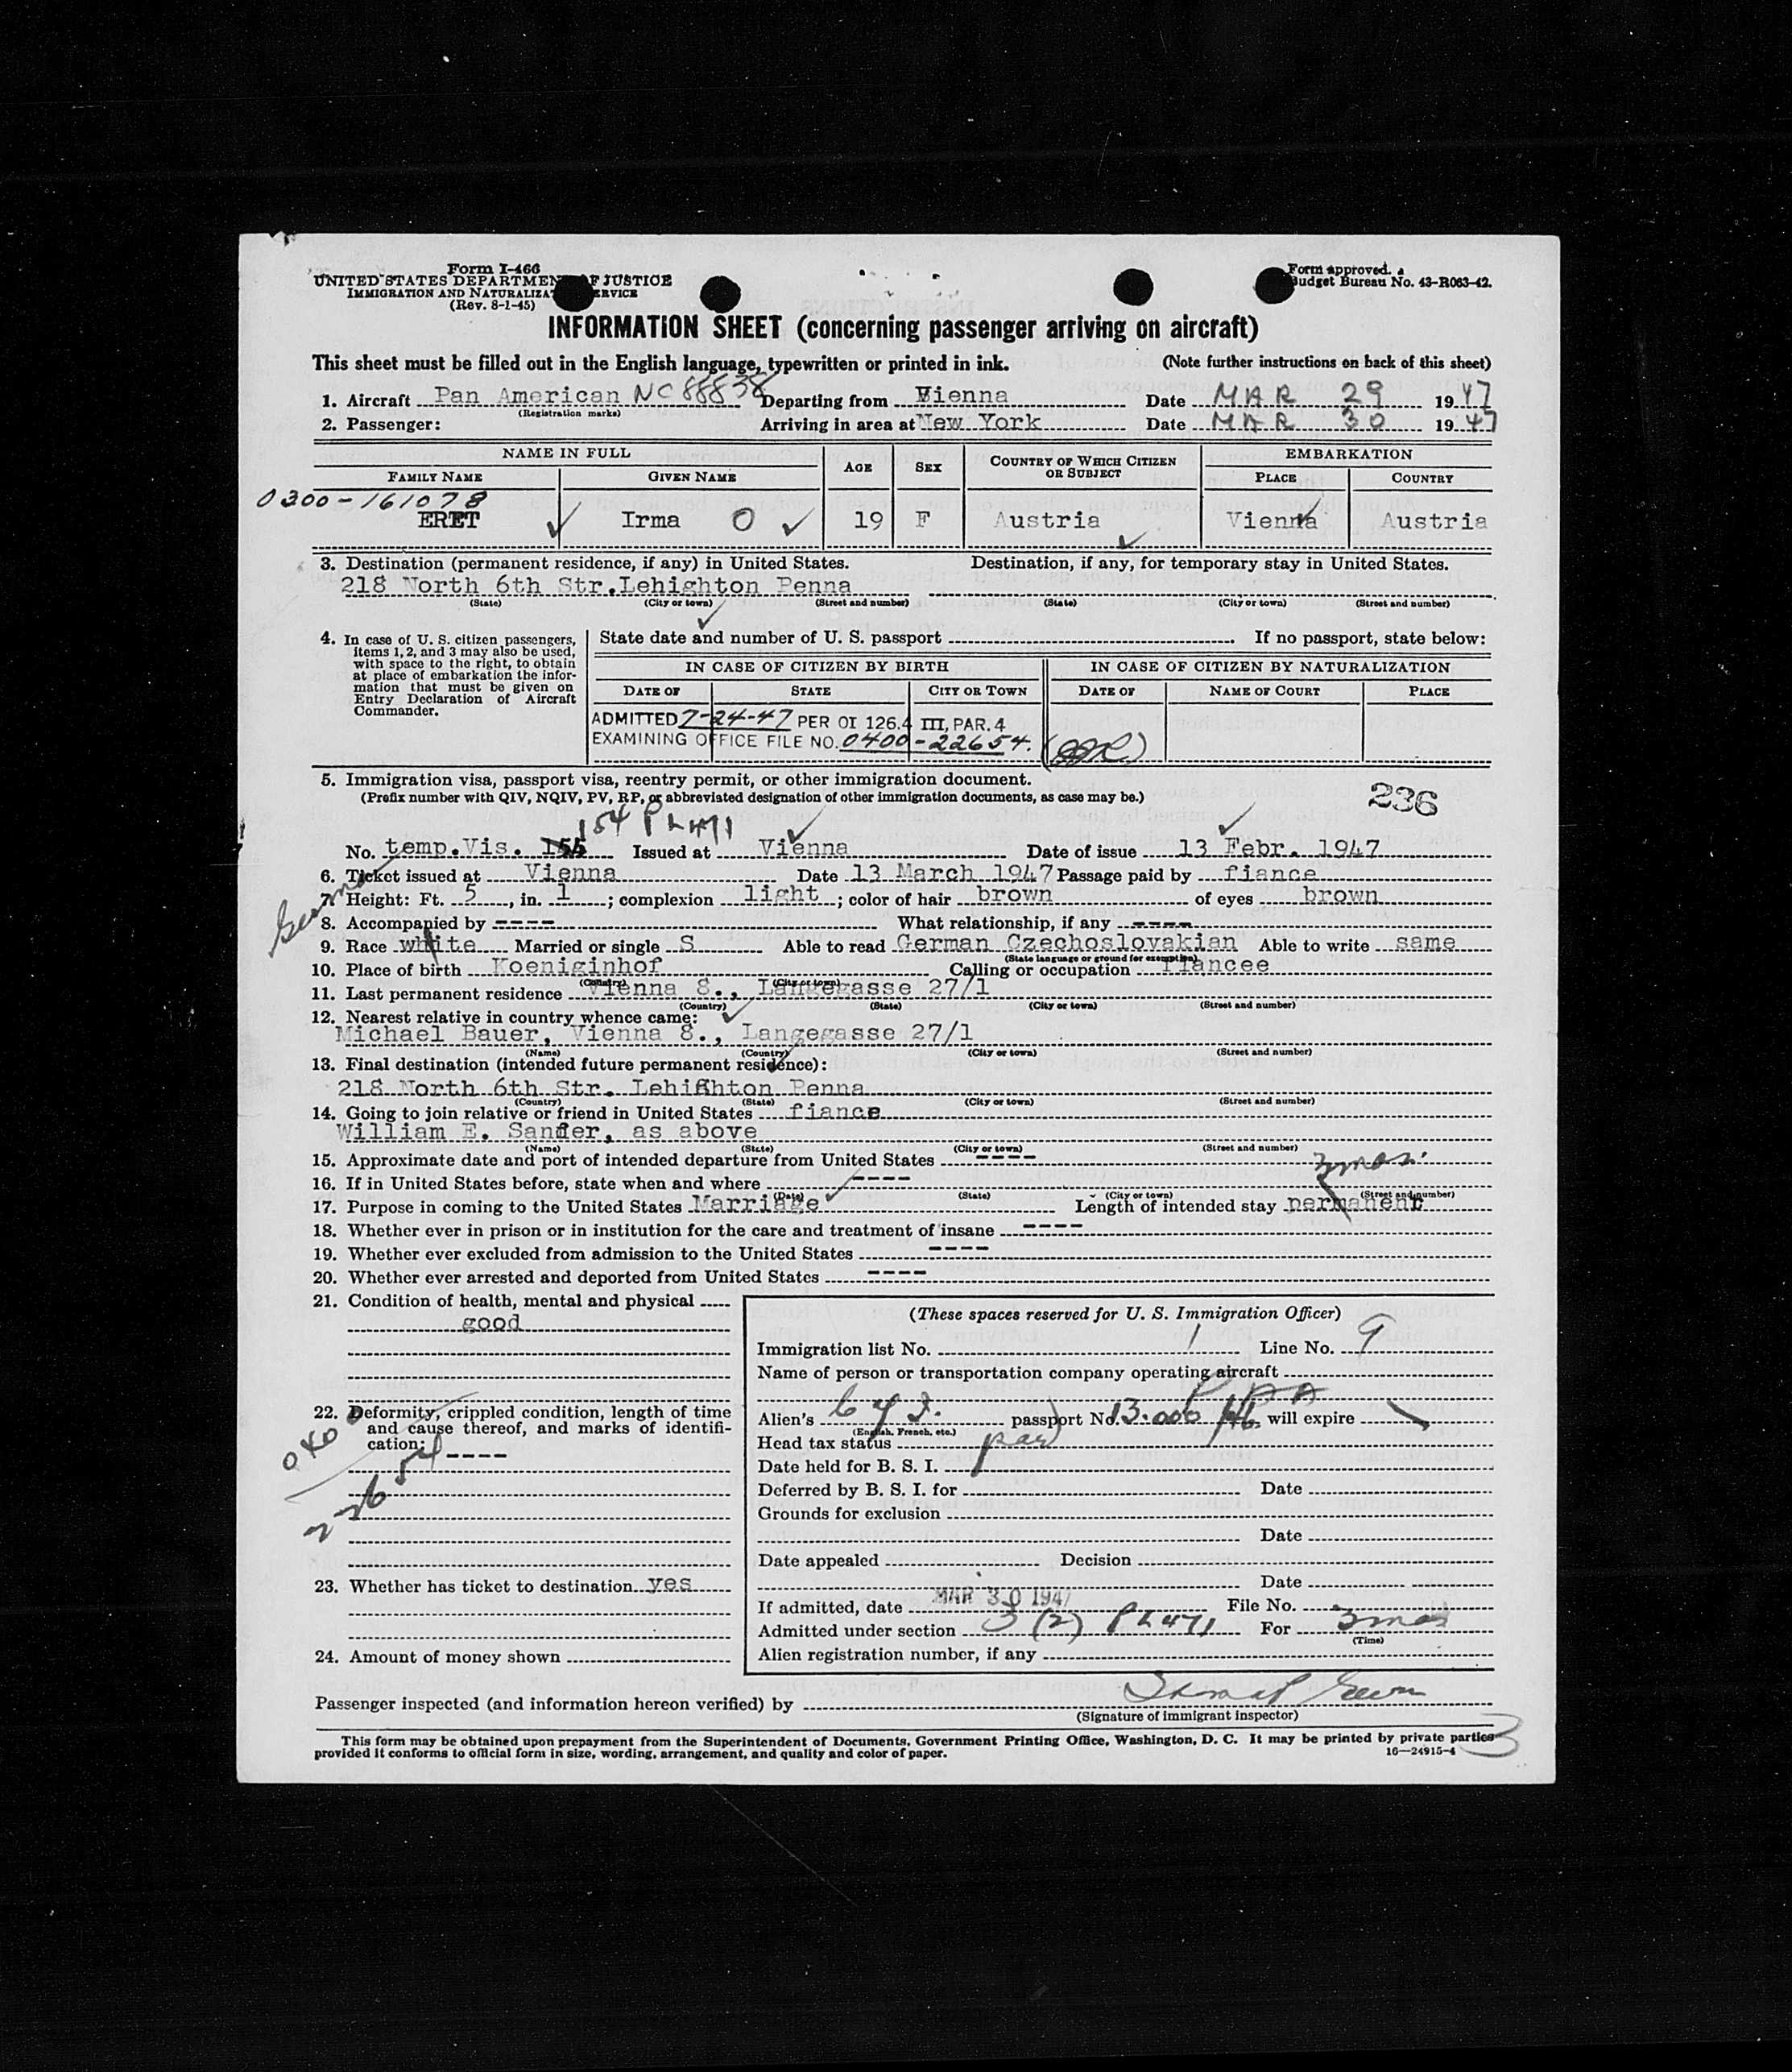 Form I-466
UNITED STATES DEPARTMENT OF JUSTICE
IMMIGRATION AND NATURALIZATION SERVICE
(Rev. 8-1-45)
Form approved.
Budget Bureau No. 43-R063-42.
INFORMATION SHEET (concerning passenger arriving on aircraft)
This sheet must be filled out in the English language, typewritten or printed in ink. (Note further instructions on back of this sheet)
1. Aircraft Pan American NC 88838 Departing from Vienna Date MAR 29 1947
(Registration marks)
2. Passenger: Arriving in area at New York Date MAR 30 1947
NAME IN FULL AGE SEX COUNTRY OF WHICH CITIZEN OR SUBJECT EMBARKATION
FAMILY NAME GIVEN NAME PLACE COUNTRY
0300-161078
ERET Irma O 19 F Austria Vienna Austria
3. Destination (permanent residence, if any) in United States. Destination, if any, for temporary stay in United States.
218 North 6th Str.Lehighton Penna
(State) (City or town) (Street and number) (State) (City or town) (Street and number)
4. In case of U. S. citizen passengers, items 1, 2, and 3 may also be used, with space to the right, to obtain at place of embarkation the information that must be given on Entry Declaration of Aircraft Commander.
State date and number of U. S. passport If no passport, state below:
IN CASE OF CITIZEN BY BIRTH IN CASE OF CITIZEN BY NATURALIZATION
DATE OF STATE CITY OR TOWN DATE OF NAME OF COURT PLACE
ADMITTED 7-24-47 PER OI 126.4 III, PAR. 4
EXAMINING OFFICE FILE NO. 0400-22654.
5. Immigration visa, passport visa, reentry permit, or other immigration document.
(Prefix number with QIV, NQIV, PV, RP, or abbreviated designation of other immigration documents, as case may be.)
236
154 PL 471
No. temp.Vis. 155 Issued at Vienna Date of issue 13 Febr. 1947
6. Ticket issued at Vienna Date 13 March 1947 Passage paid by fiance
7. Height: Ft. 5, in. 1; complexion light; color of hair brown of eyes brown
German
8. Accompanied by ---- What relationship, if any ----
9. Race white Married or single S Able to read German Czechoslovakian Able to write same
(State language or ground for exemption)
10. Place of birth Koeniginhof Calling or occupation Fiancee
(Country) (City or town)
11. Last permanent residence Vienna 8., Langegasse 27/1
(Country) (State) (City or town) (Street and number)
12. Nearest relative in country whence came:
Michael Bauer, Vienna 8., Langegasse 27/1
(Name) (Country) (City or town) (Street and number)
13. Final destination (intended future permanent residence):
218 North 6th Str. Lehighton Penna
(Country) (State) (City or town) (Street and number)
14. Going to join relative or friend in United States fiance
William E. Sander, as above
(Name) (State) (City or town) (Street and number)
15. Approximate date and port of intended departure from United States ----
3 mos.
16. If in United States before, state when and where ----
(Date) (State) (City or town) (Street and number)
17. Purpose in coming to the United States Marriage Length of intended stay permanent
18. Whether ever in prison or in institution for the care and treatment of insane ----
19. Whether ever excluded from admission to the United States ----
20. Whether ever arrested and deported from United States ----
21. Condition of health, mental and physical
good
22. Deformity, crippled condition, length of time and cause thereof, and marks of identification: ----
0400
22654
23. Whether has ticket to destination yes
24. Amount of money shown
(These spaces reserved for U. S. Immigration Officer)
Immigration list No. 1 Line No. 9
Name of person or transportation company operating aircraft
PAA
Alien's passport No. 13.000 will expire
(English, French, etc.)
Head tax status
Date held for B. S. I.
Deferred by B. S. I. for Date
Grounds for exclusion
Date
Date appealed Decision
Date
If admitted, date MAR 30 1947 File No.
Admitted under section 3 (2) PL 471 For 3 mos
(Time)
Alien registration number, if any
Passenger inspected (and information hereon verified) by
(Signature of immigrant inspector)
This form may be obtained upon prepayment from the Superintendent of Documents, Government Printing Office, Washington, D. C. It may be printed by private parties
provided it conforms to official form in size, wording, arrangement, and quality and color of paper. 16—24915-4
3